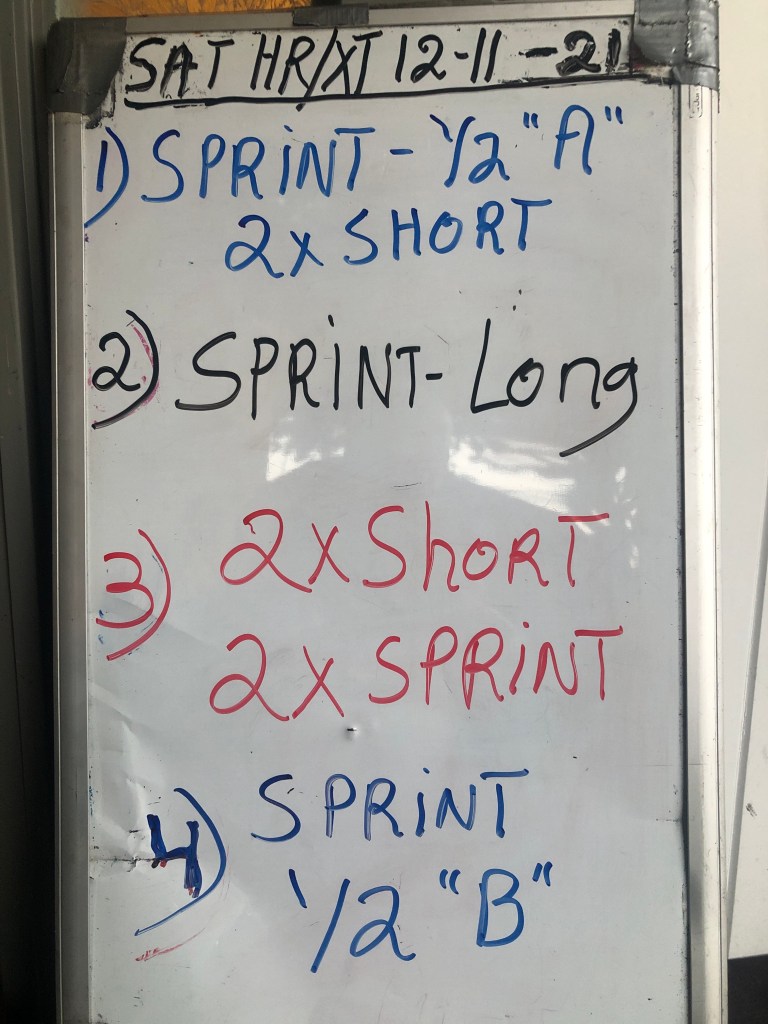 SAT HR/XT 12-11-21
1) SPRINT - 1/2 "A"
2x SHORT
2) SPRINT - Long
3) 2x ShORT
2x SPRINT
4) SPRINT
1/2 "B"